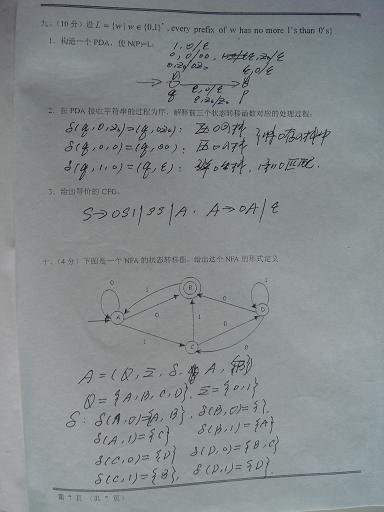 九、(10分) 设 L={w | w ∈ {0,1}*, every prefix of w has no more 1's than 0's}
1. 构造一个PDA, 使 N(P)=L。
1, 0/ε
0, 0/00,
0, z₀/0z₀
ε, 0/ε
q
ε, 0/ε
ε, z₀/z₀
p
2. 在PDA接收字符串的过程为序, 解释前三个状态转移函数对应的处理过程:
δ(q, 0, z₀)=(q, 0z₀):
δ(q, 0, 0)=(q, 00):
δ(q, 1, 0)=(q, ε):
3. 给出等价的CFG。
S→0S1|SS|A, A→0A|ε
十、(4分) 下图是一个NFA的状态转移图, 给出这个NFA的形式定义
0
1
B
0
1
A
0
1
0
D
1
C
0
A = (Q, Σ, δ, A, {B})
Q = {A, B, C, D}, Σ = {0, 1}
δ: δ(A,0)={A, B}, δ(B,0)={ },
δ(A,1)={C} δ(B,1)={A}
δ(C,0)={D} δ(D,0)={B, C}
δ(C,1)={B}, δ(D,1)={D}